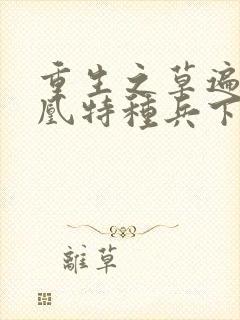 重生之草遍
凰特種兵下
離草